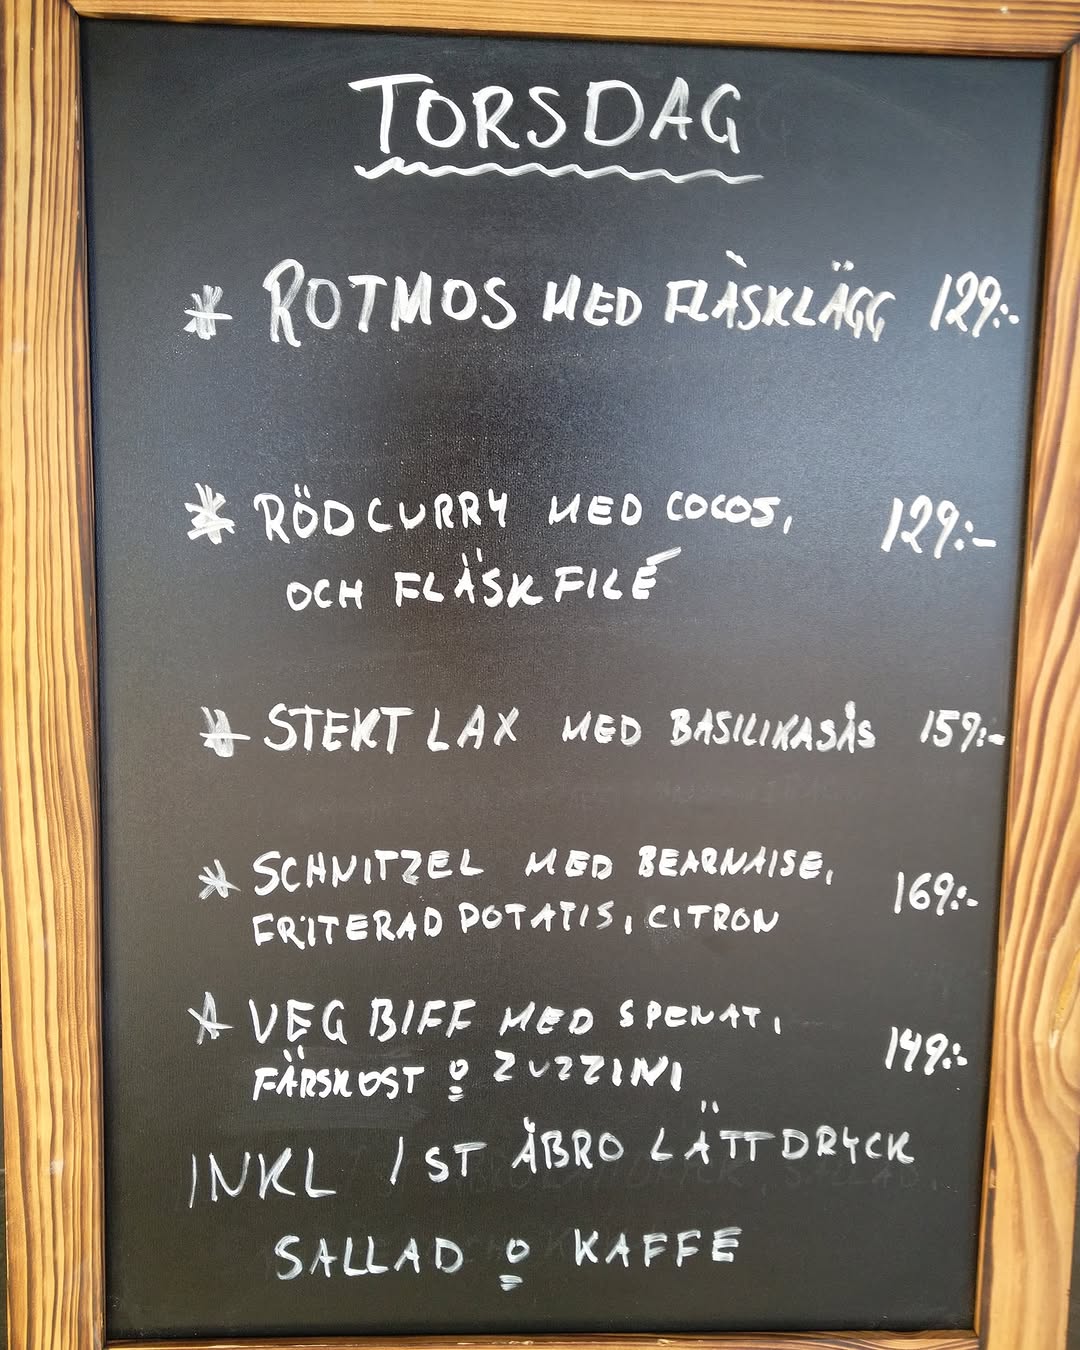 TORSDAG
* ROTMOS MED FLÄSKLÄGG 129:-
* RÖDCURRY MED COCOS, 129:-
OCH FLÄSKFILÉ
* STEKT LAX MED BASILIKASÅS 159:-
* SCHNITZEL MED BEARNAISE, 169:-
FRITERAD POTATIS, CITRON
* VEG BIFF MED SPENAT, 149:-
FÄRSKOST o ZUZZINI
INKL 1 ST ÅBRO LÄTTDRYCK
SALLAD o KAFFE